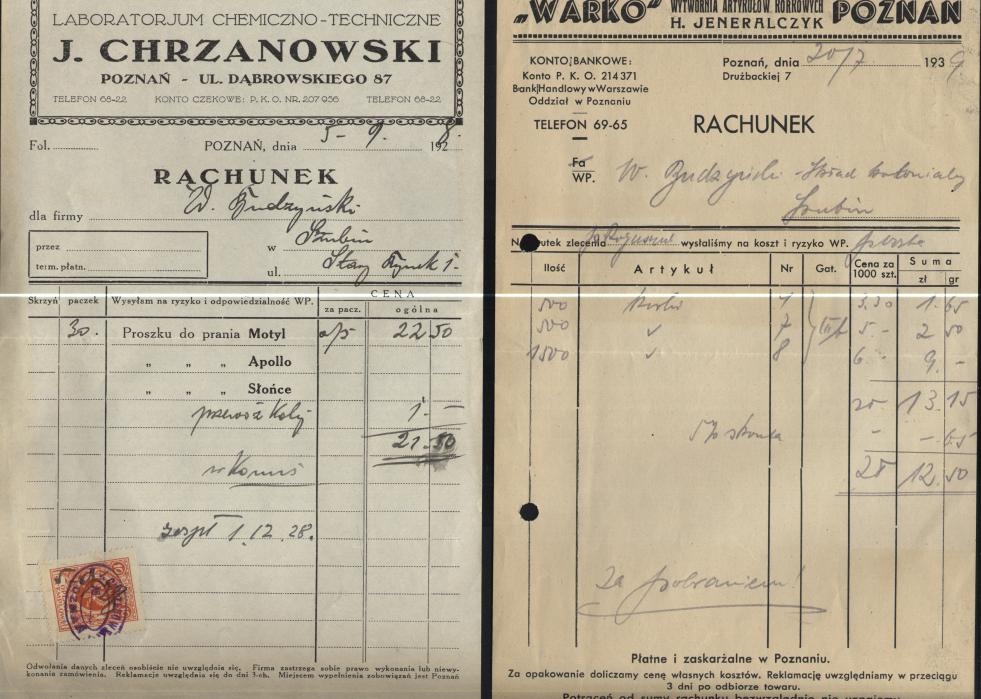 LABORATORJUM CHEMICZNO-TECHNICZNE
J. CHRZANOWSKI
POZNAŃ - UL. DĄBROWSKIEGO 87
TELEFON 68-22 KONTO CZEKOWE: P. K. O. NR. 207 956 TELEFON 68-22
Fol. POZNAŃ, dnia 5-9. 1928
RACHUNEK
dla firmy W. Budzyński
przez
w Szubin
term. płatn.
ul. Stary Rynek 1.
Skrzyń paczek Wysyłam na ryzyko i odpowiedzialność WP. CENA
za pacz. ogólna
30. Proszku do prania Motyl a/75 22 50
„ „ „ Apollo
„ „ „ Słońce
przewóz Kolej 1.-
21.50
w Komis
zaspł 1.12.28.
Odwołania danych zleceń osobiście nie uwzględnia się. Firma zastrzega sobie prawo wykonania lub niewy-
konania zamówienia. Reklamacje uwzględnia się do 3 dni. Miejscem wypełnienia zobowiązań jest Poznań
„WARKO” WYTWÓRNIA ARTYKUŁÓW KORKOWYCH POZNAŃ
H. JENERALCZYK
KONTO BANKOWE:
Konto P. K. O. 214371
Bank Handlowy w Warszawie
Oddział w Poznaniu
TELEFON 69-65
Poznań, dnia 20/7 1939
Drużbackiej 7
RACHUNEK
Fa
WP. W. Budzyński - Skład kolonialny
Szubin
Na skutek zlecenia wysłaliśmy na koszt i ryzyko WP. pocztą
Ilość Artykuł Nr Gat. Cena za 1000 szt. Suma
zł gr
500 korki 4 III/ 3.30 1.65
500 " 7 5.- 2 50
1500 " 8 6.- 9.-
13.15
5% skonta - -.65
12.50
Za pobraniem!
Płatne i zaskarżalne w Poznaniu.
Za opakowanie doliczamy cenę własnych kosztów. Reklamację uwzględniamy w przeciągu
3 dni po odbiorze towaru.